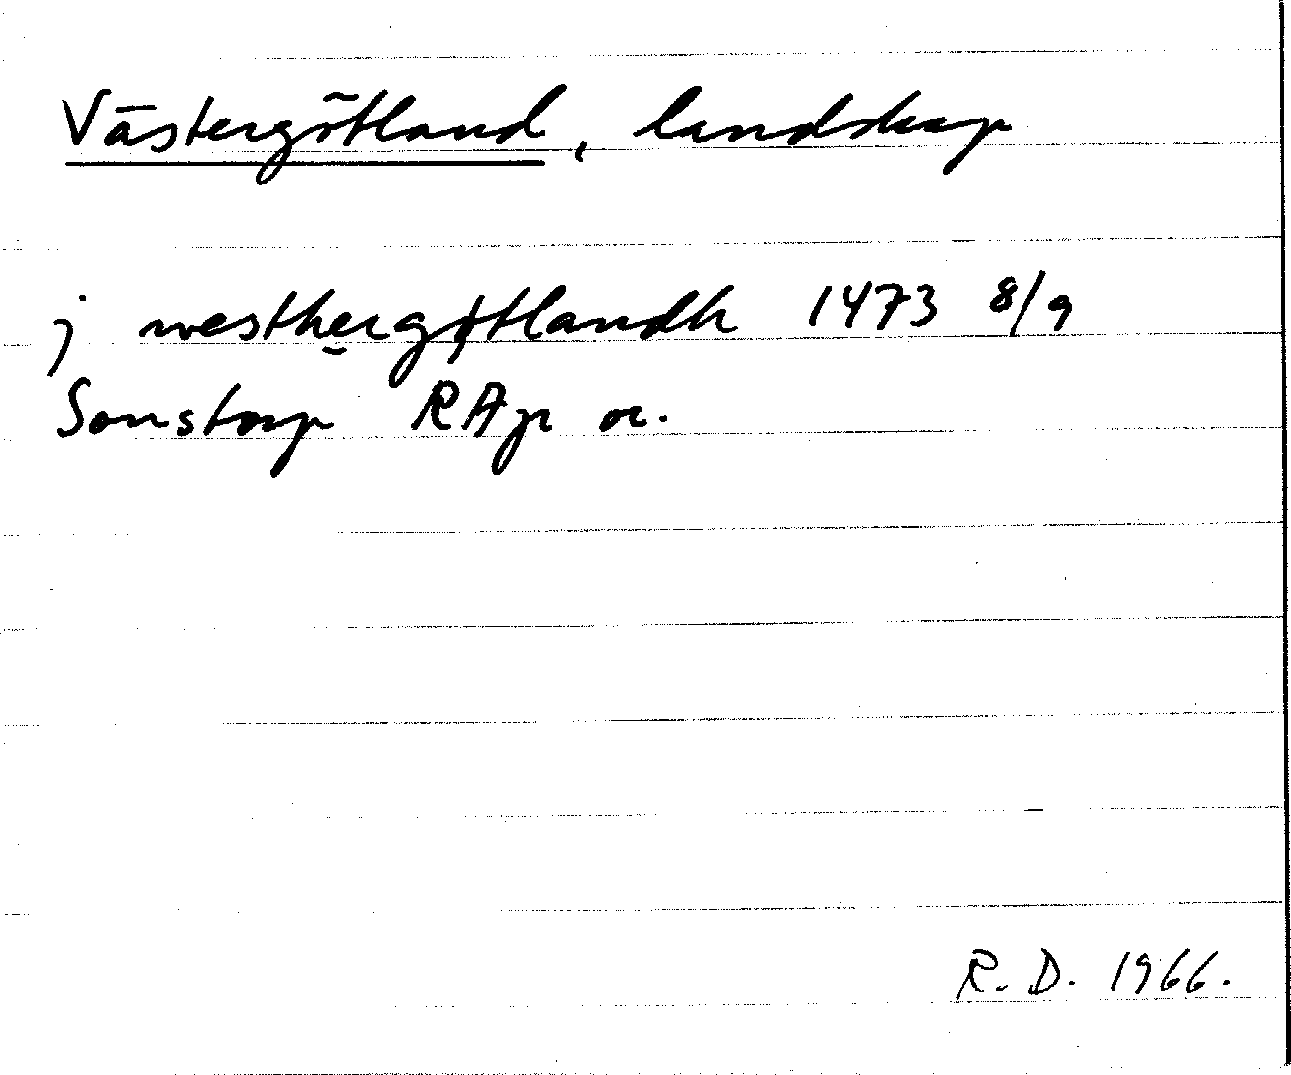 Västergötland, landskap
j westhergøtlandh 1473 8/9
Sonstorp RAp or.
R. D. 1966.